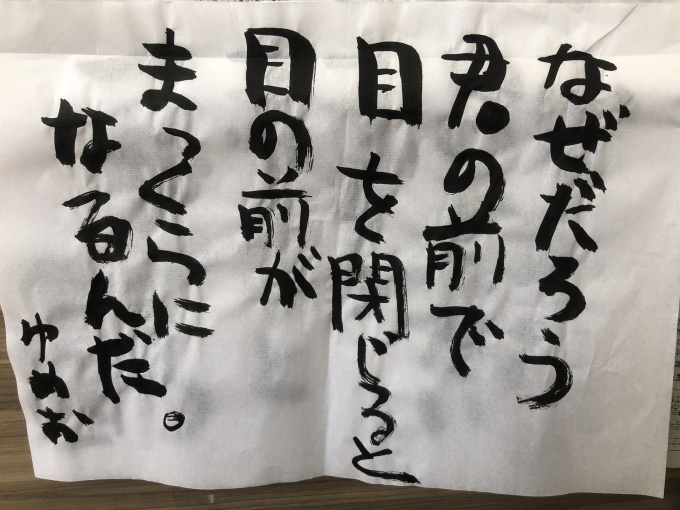 なぜだろう
君の前で
目を閉じると
目の前が
まっくらに
なるんだ。
ゆめお